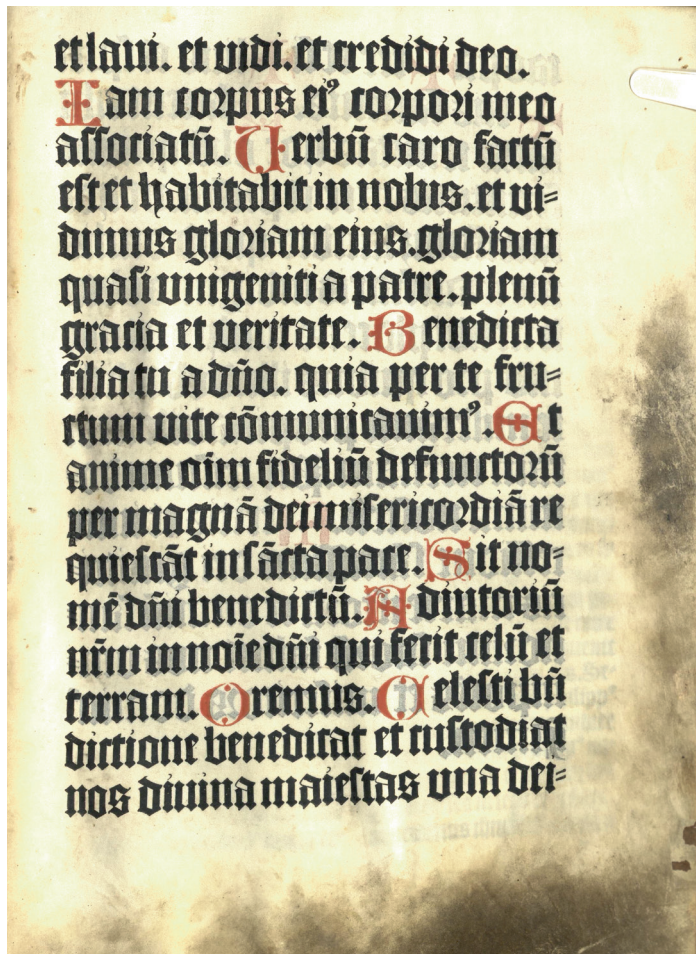 et laui. et vidi. et credidi deo.
Iam corpus ei⁹ corpori meo
associatū. Uerbū caro factū
est et habitabit in nobis. et vi⸗
dimus gloriam eius. gloriam
quasi vnigeniti a patre. plenū
gracia et veritate. Benedicta
filia tu a dño. quia per te fru⸗
ctum vite cōmunicauim⁹. Et
anime oīm fideliū defunctorū
per magnā dei misericordiā re
quiescāt in sācta pace. Sit no⸗
mē dñi benedictū. Adiutoriū
nr̄m in noīe dñi qui fecit celū et
terram. Oremus. Celesti bn̄
dictione benedicat et custodiat
nos diuina maiestas vna dei⸗